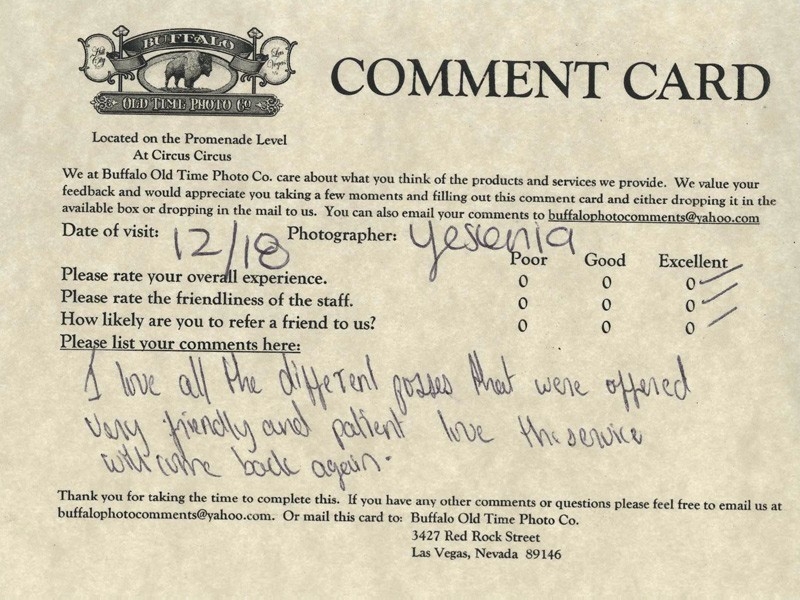 BUFFALO
OLD TIME PHOTO CO.
COMMENT CARD
Located on the Promenade Level
At Circus Circus
We at Buffalo Old Time Photo Co. care about what you think of the products and services we provide. We value your
feedback and would appreciate you taking a few moments and filling out this comment card and either dropping it in the
available box or dropping in the mail to us. You can also email your comments to buffalophotocomments@yahoo.com
Date of visit: 12/18 Photographer: Yesenia
Poor Good Excellent
Please rate your overall experience. 0 0 0
Please rate the friendliness of the staff. 0 0 0
How likely are you to refer a friend to us? 0 0 0
Please list your comments here:
I love all the different posses that were offered
very friendly and patient love the service
will come back again.
Thank you for taking the time to complete this. If you have any other comments or questions please feel free to email us at
buffalophotocomments@yahoo.com. Or mail this card to: Buffalo Old Time Photo Co.
3427 Red Rock Street
Las Vegas, Nevada 89146